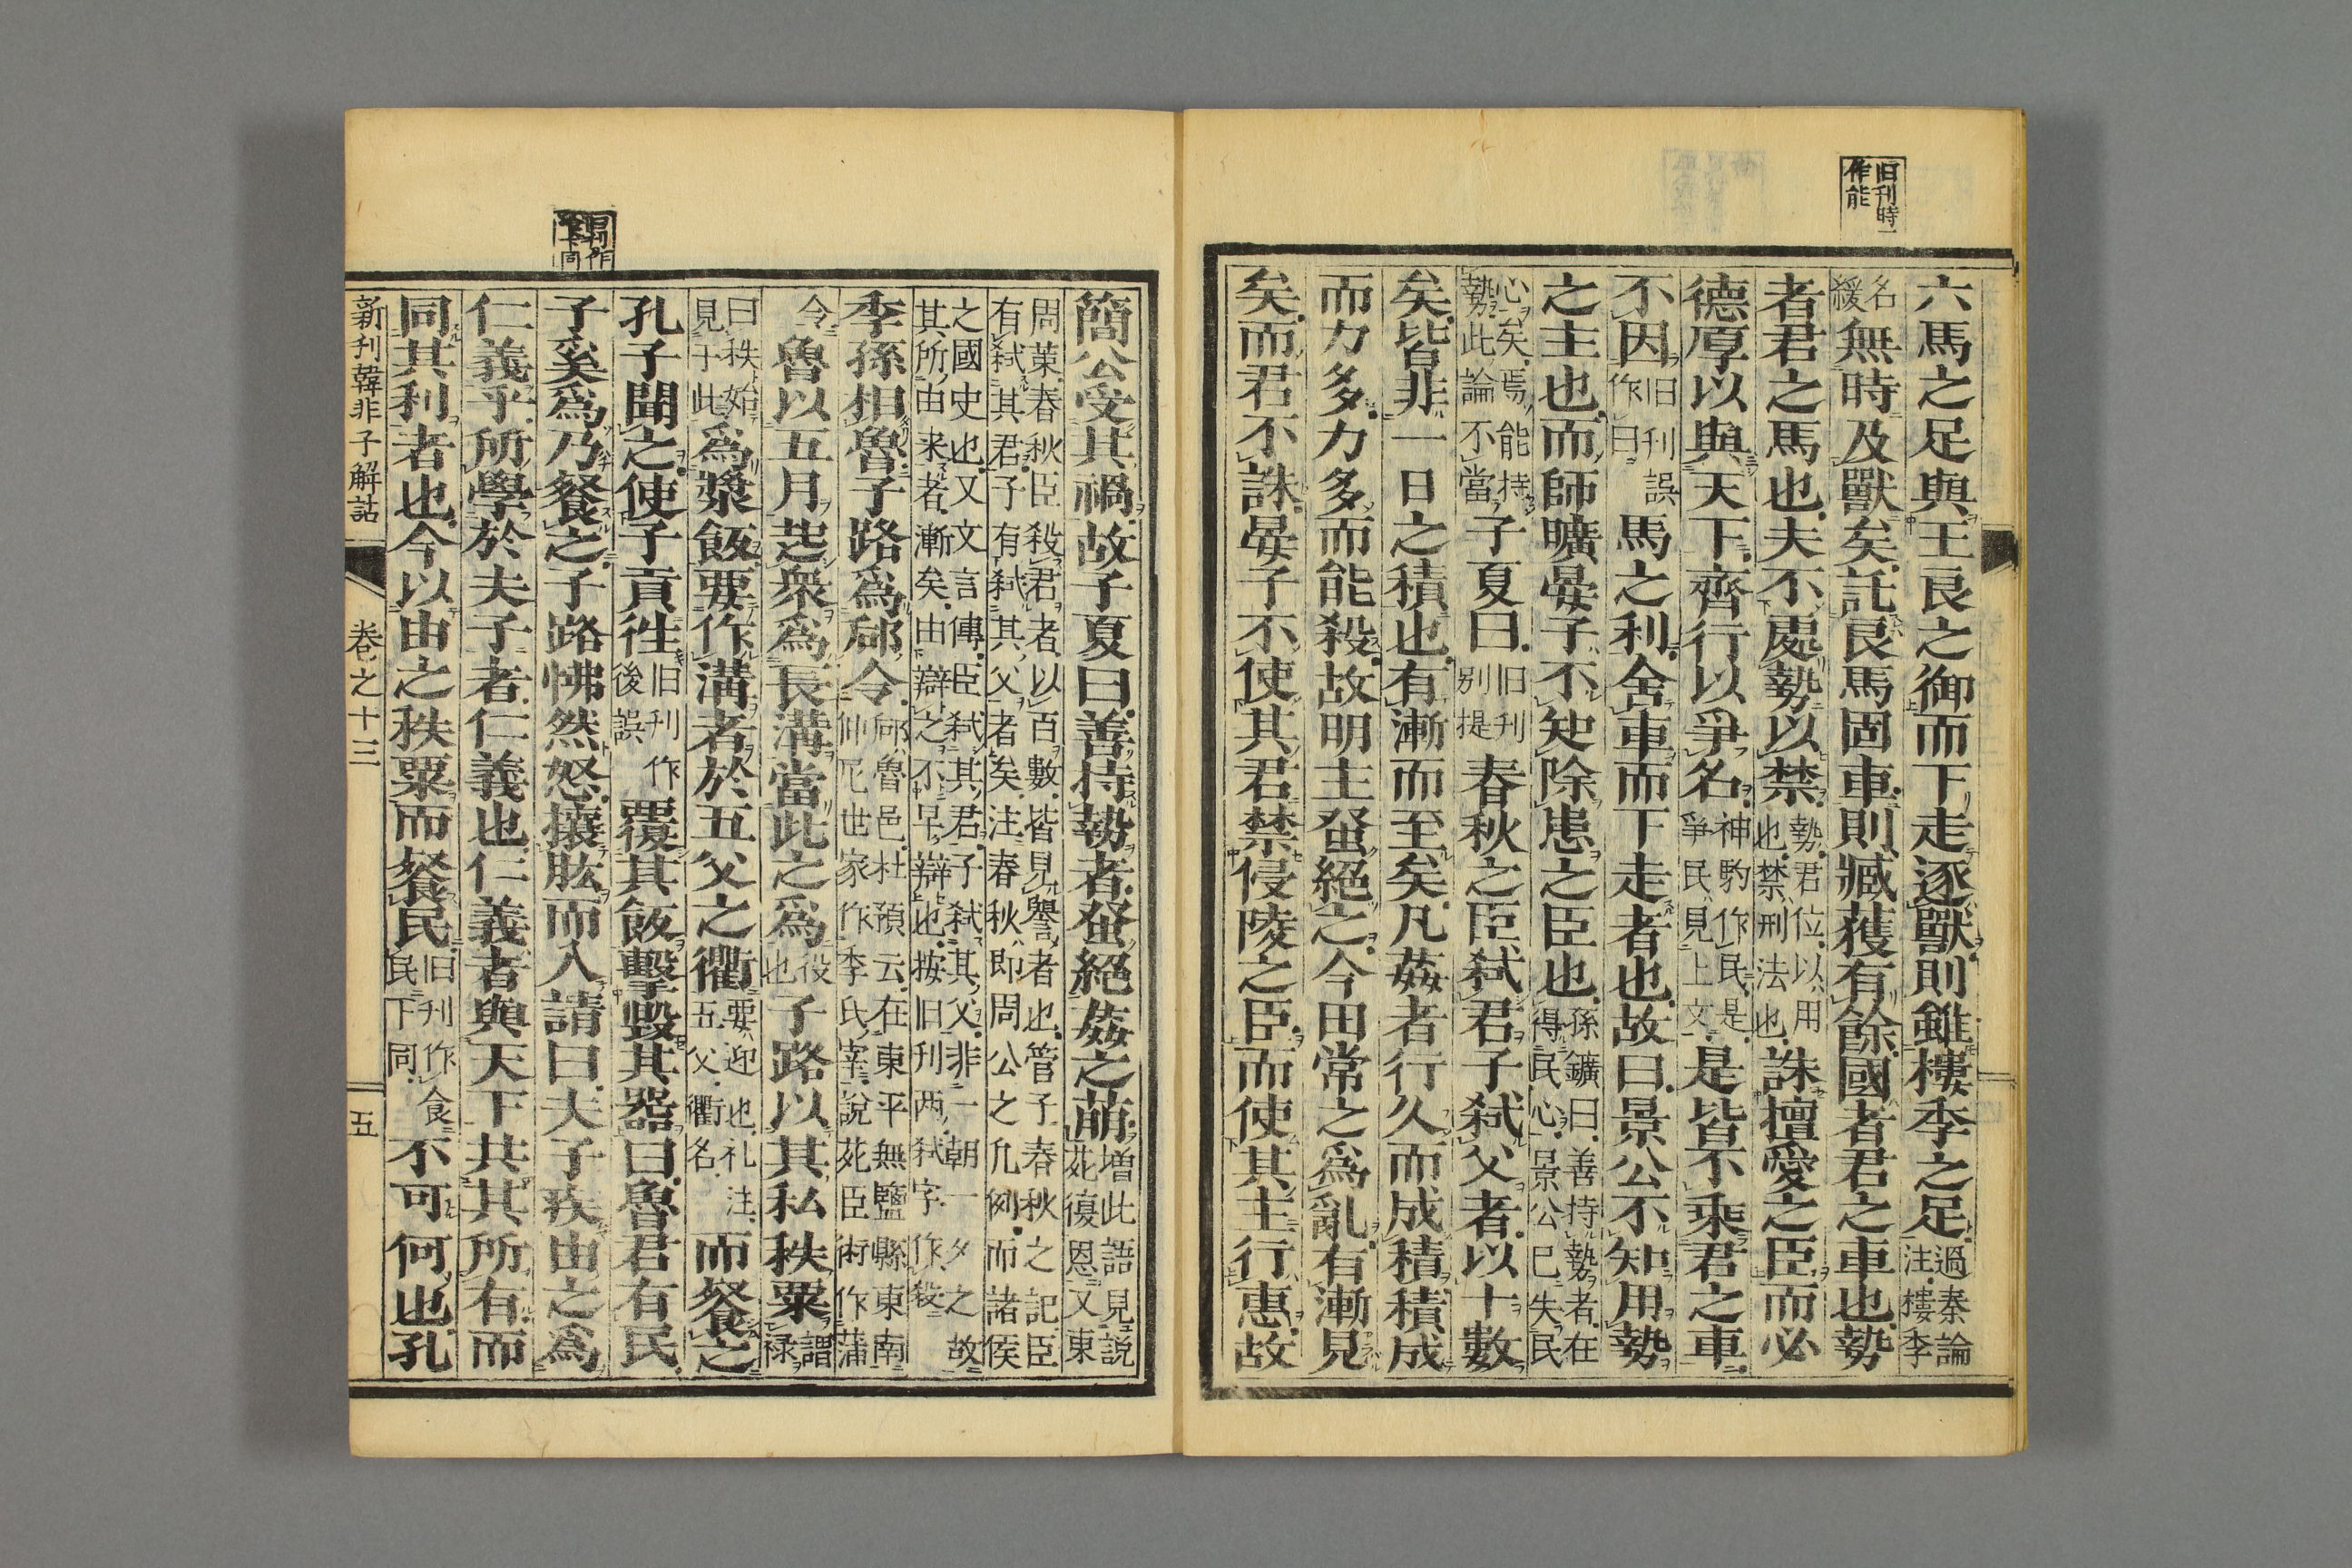 旧刊時一
作能
六馬之足與王良之御而下走逐獸則雖樓季之足過秦論注樓季
名緩無時及獸矣託良馬固車則臧獲有餘國者君之車也勢
者君之馬也夫不處勢以禁勢君位以用也禁刑法也誅擅愛之臣而必
德厚以與天下齊行以爭名神駒作民是爭民見上文是皆不乘君之車
不因旧刊誤作曰馬之利舍車而下走者也故曰景公不知用勢
之主也而師曠晏子不知除患之臣也孫鑛曰善持勢者在得民心景公已失民
心矣焉能持勢此論不當子夏曰旧刊別提春秋之臣弑君子弑父者以十數
矣皆非一日之積也有漸而至矣凡姦者行久而成積積成
而力多力多而能殺故明主蚤絕之今田常之爲亂有漸見
矣而君不誅晏子不使其君禁侵陵之臣而使其主行惠故
簡公受其禍故子夏曰善持勢者蚤絕姦之萠増此語見説苑復恩又東
周策春秋臣殺君者以百數皆見譽者也管子春秋之記臣有弑其君子有弑其父者矣注春秋即周公之凡例而諸侯
之國史也又文言傳臣弑其君子弑其父非一朝一夕之故其所由来者漸矣由辯之不早辯也按旧刊两弑字作殺
季孫相魯子路爲郈令郈魯邑杜預云在東平無鹽縣東南仲尼世家作季氏宰說苑臣術作蒲
令魯以五月起衆爲長溝當此之爲役也子路以其私秩粟謂禄
曰秩始見于此爲漿飯要作溝者於五父之衢要迎也礼注五父衢名而餐之
孔子聞之使子貢徃旧刊作後誤覆其飯擊毀其器曰魯君有民
子奚爲乃餐之子路怫然怒攘肱而入請曰夫子疾由之爲
仁義乎所學於夫子者仁義也仁義者與天下共其所有而
同其利者也今以由之秩粟而餐民旧刊作食民下同不可何也孔
新刊韓非子解詁 卷之十三 五